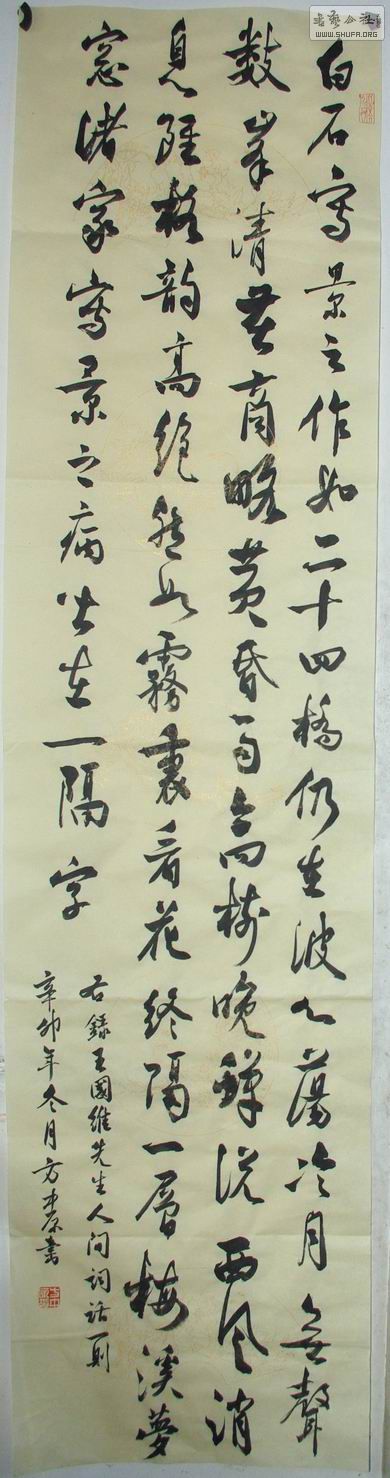 白石寫景之作如二十四橋仍在波心蕩冷月無聲
數峯清苦商略黃昏雨高樹晚蟬說西風消
息雖格韻高絕然如霧裏看花終隔一層梅溪夢
窓諸家寫景之病皆在一隔字
右錄王國維先生人间词话一则
辛卯年冬月方
書
书法公社
WWW.SHUFA.ORG